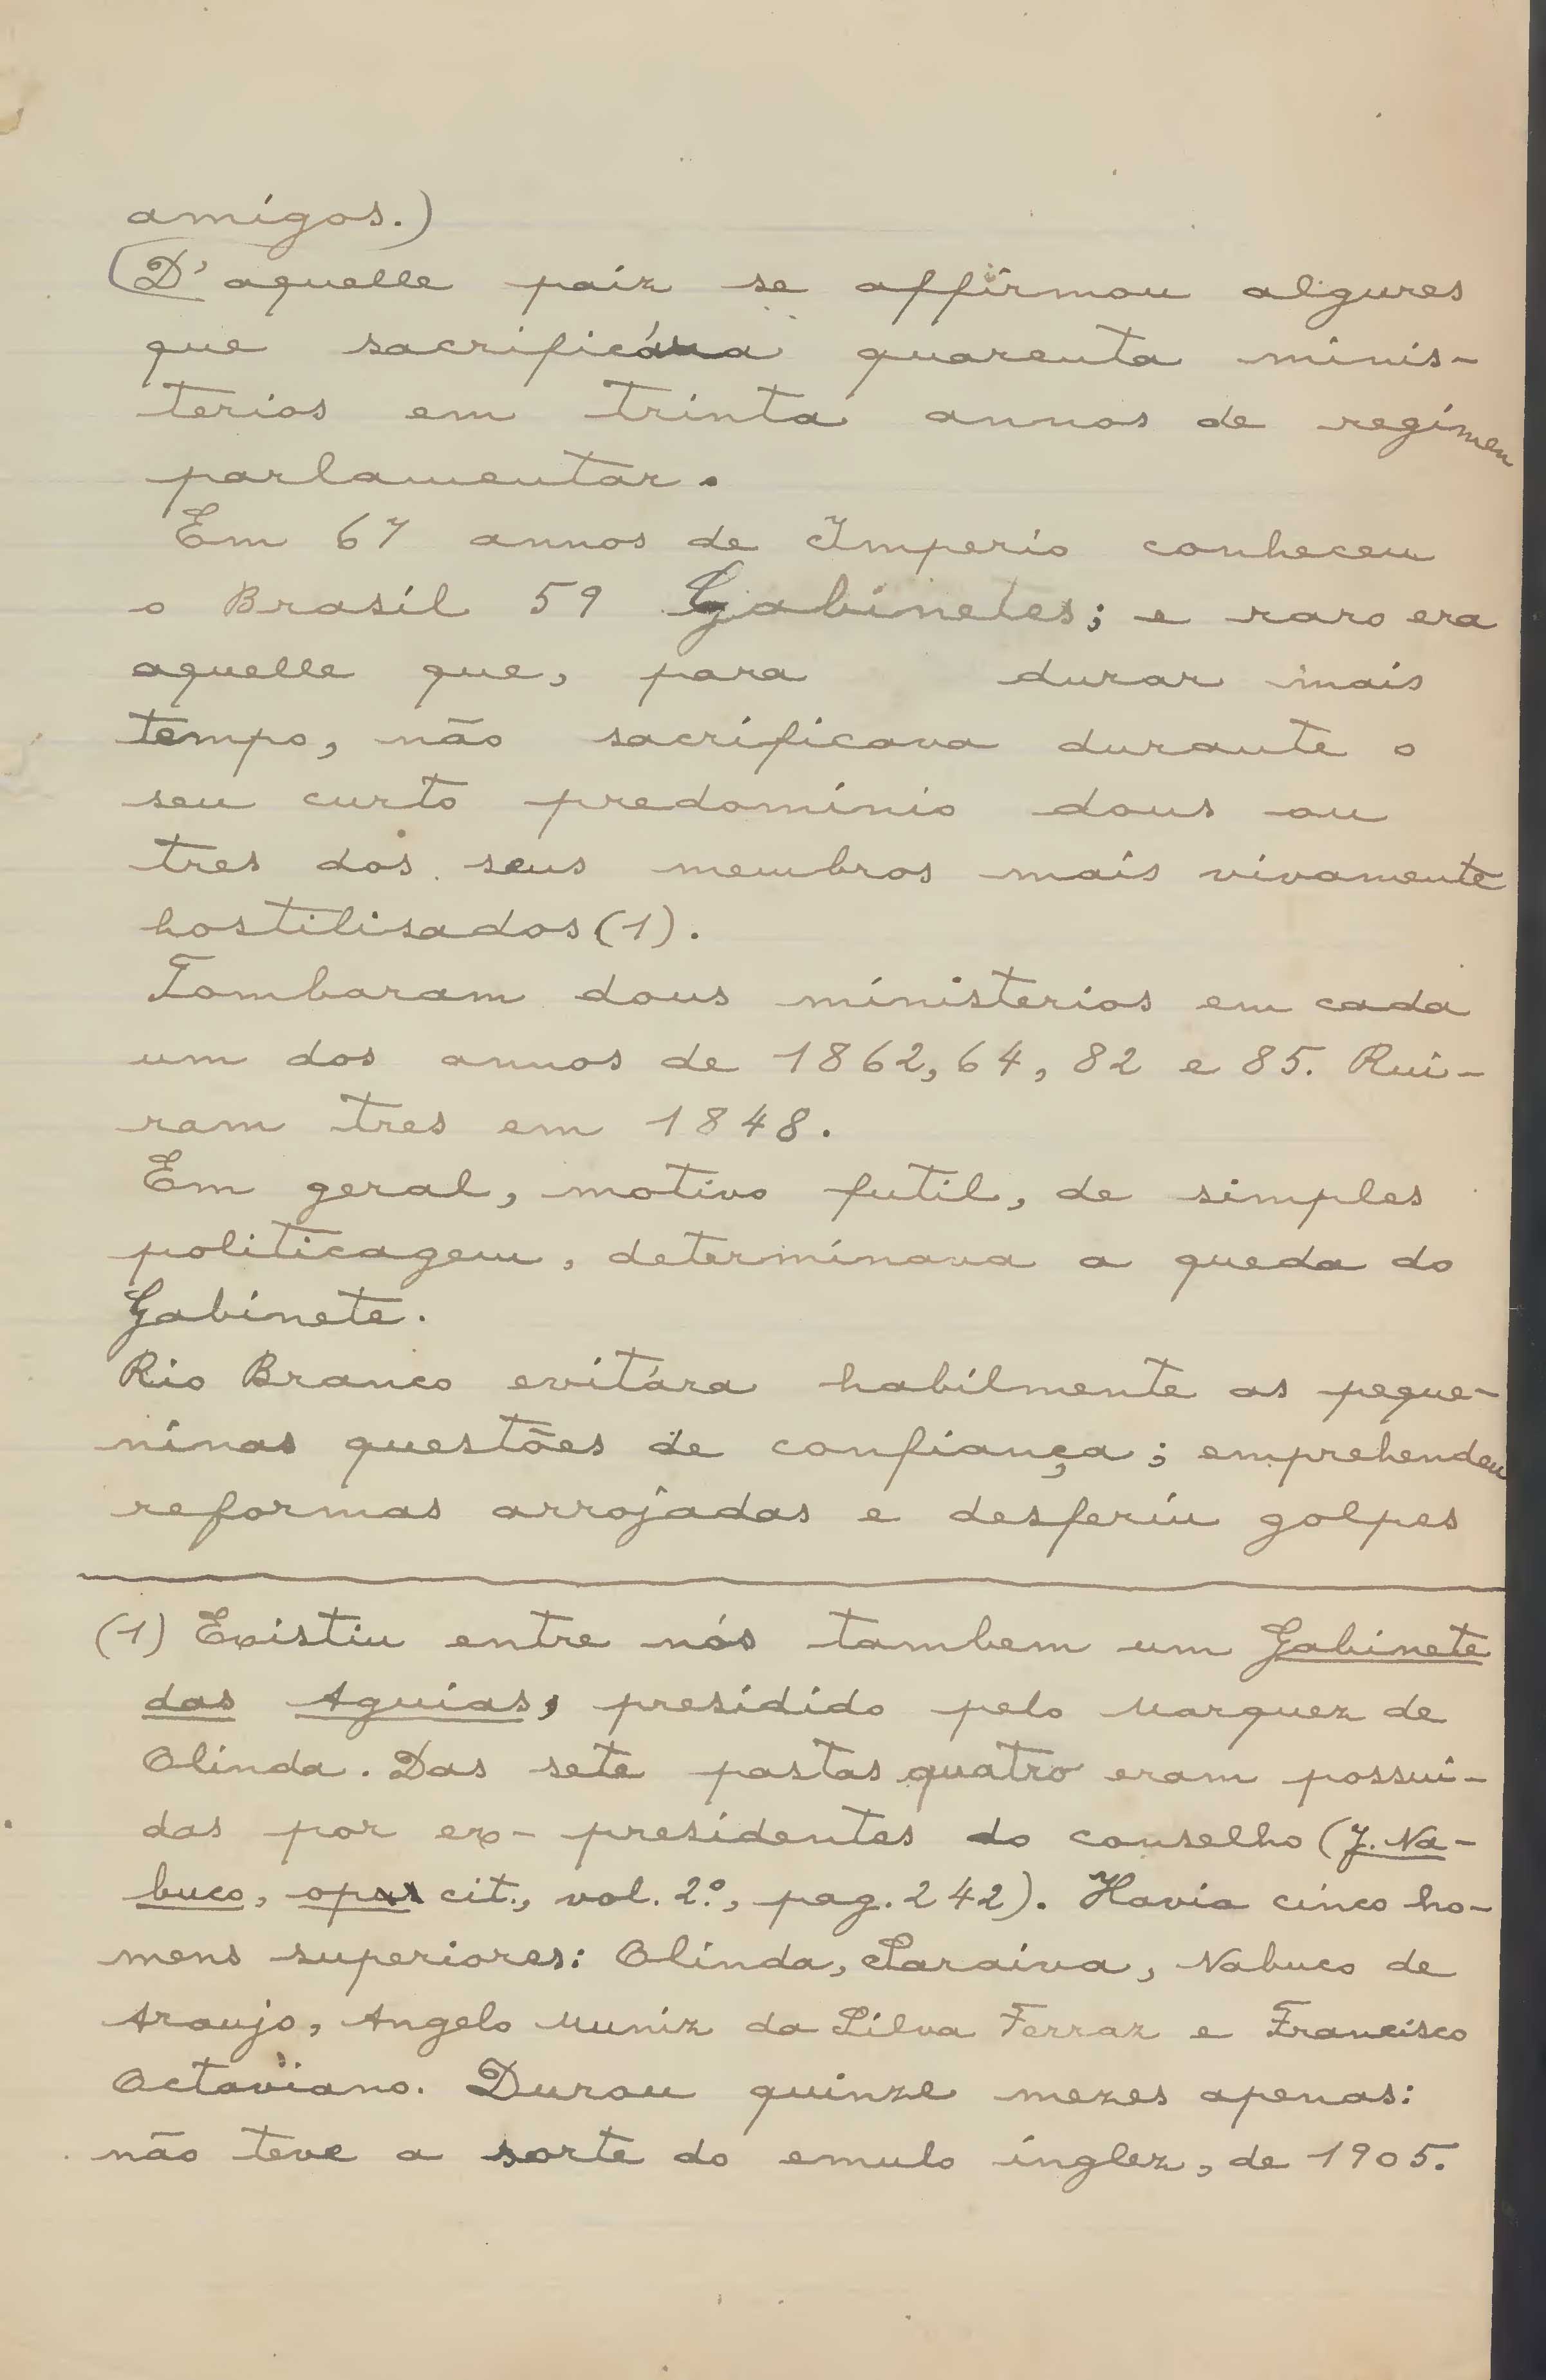 amigos.)
(D'aquelle paiz se affirmou algures
que sacrificára quarenta minis-
terios em trinta annos de regimen
parlamentar.
Em 67 annos de Imperio conheceu
o Brasil 59 Gabinetes; e raro era
aquelle que, para durar mais
tempo, não sacrificava durante o
seu curto predominio dous ou
tres dos seus membros mais vivamente
hostilisados (1).
Tombaram dous ministerios em cada
um dos annos de 1862, 64, 82 e 85. Rui-
ram tres em 1848.
Em geral, motivo futil, de simples
politicagem, determinava a queda do
Gabinete.
Rio Branco evitára habilmente as peque-
ninas questões de confiança; emprehendeu
reformas arrojadas e desferiu golpes
(1) Existiu entre nós tambem um Gabinete
das Aguias, presidido pelo Marquez de
Olinda. Das sete pastas quatro eram possui-
das por ex-presidentes do conselho (J. Na-
buco, op. cit., vol. 2º, pag. 242). Havia cinco ho-
mens superiores: Olinda, Saraiva, Nabuco de
Araujo, Angelo Muniz da Silva Ferraz e Francisco
Octaviano. Durou quinze mezes apenas:
não teve a sorte do emulo inglez, de 1905.